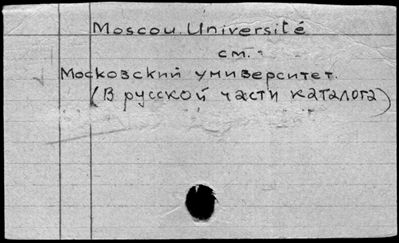 Moscou. Université
см.
Московский университет.
(В русской части каталога)